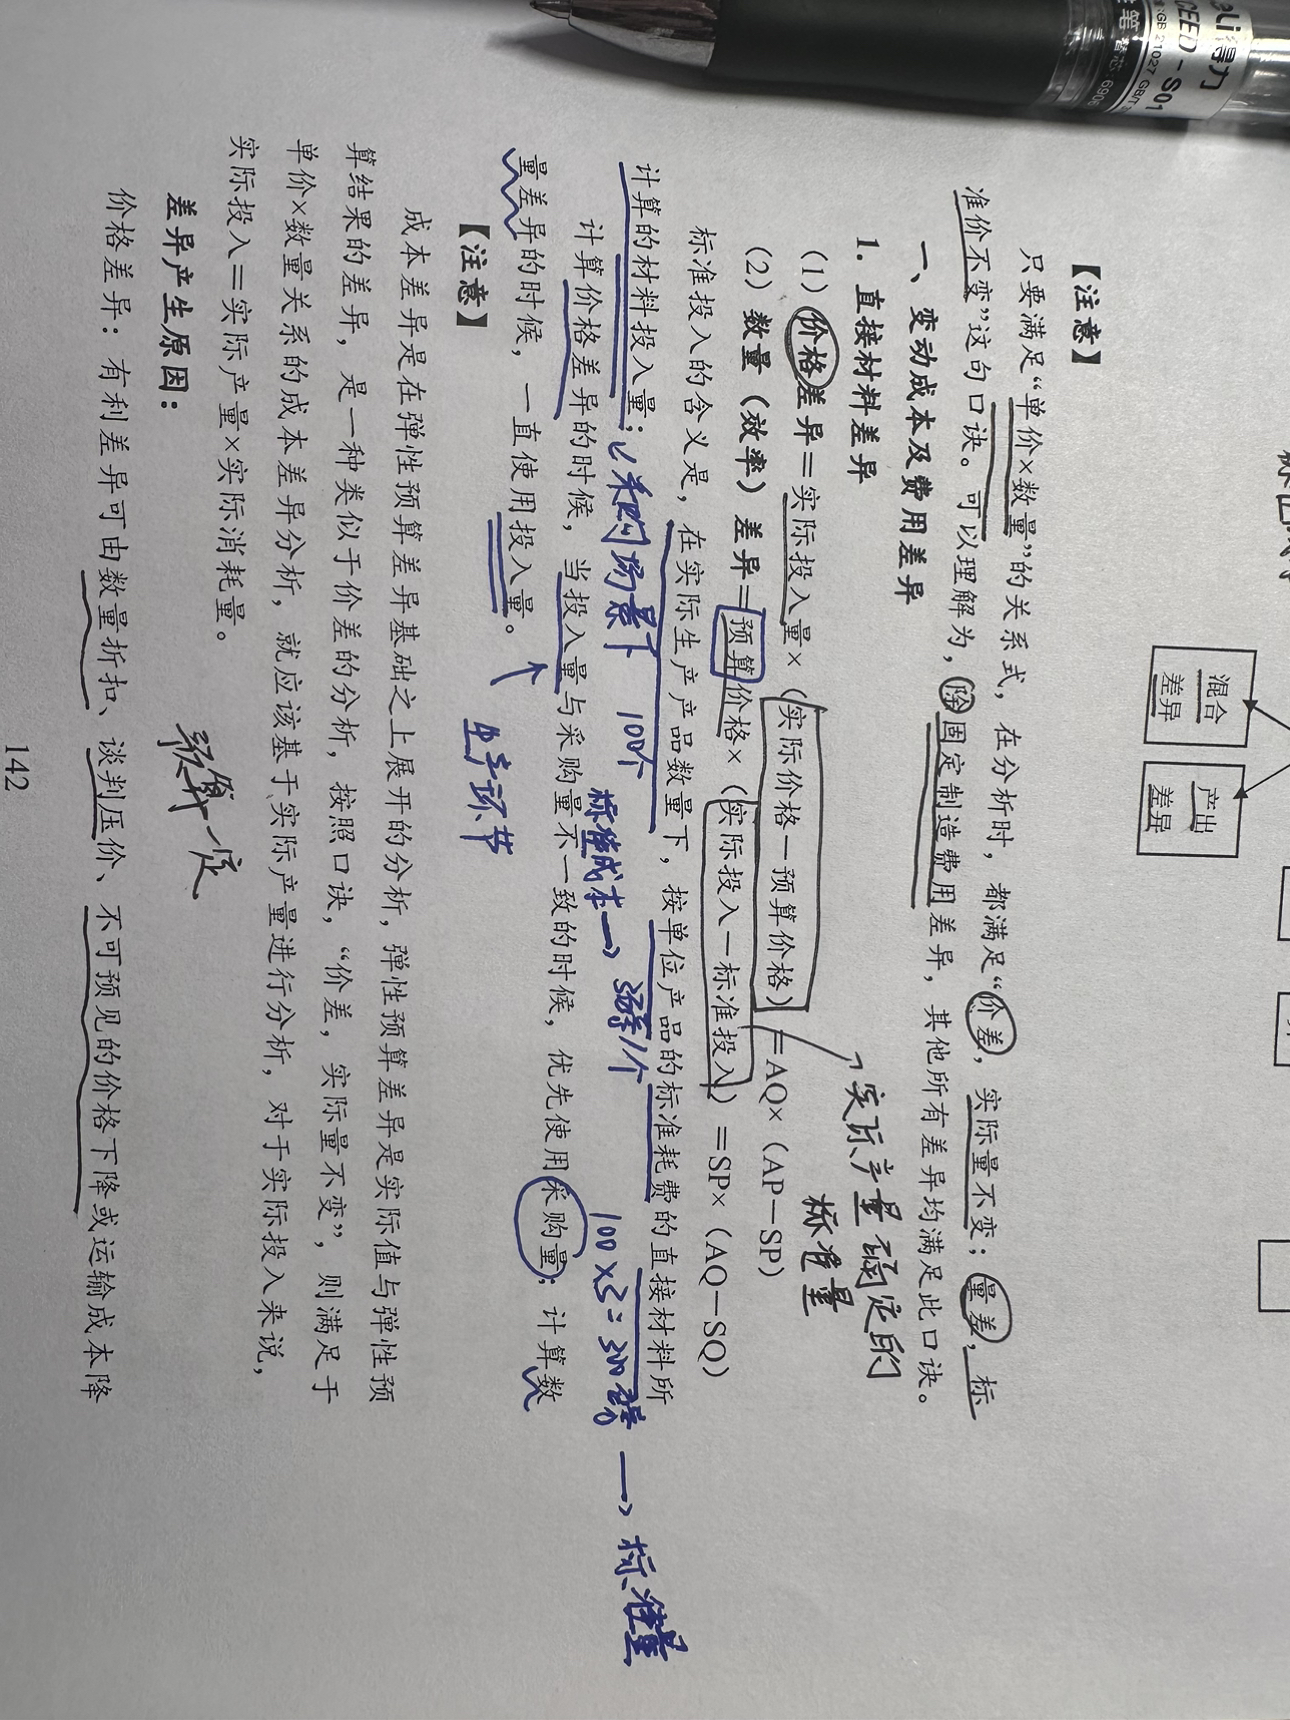 混合
差异
产出
差异
【注意】
只要满足“单价×数量”的关系式，在分析时，都满足“价差，实际量不变；量差，标
准价不变”这句口诀。可以理解为，除固定制造费用差异，其他所有差异均满足此口诀。
一、变动成本及费用差异
1. 直接材料差异
（1）价格差异＝实际投入量×（实际价格－预算价格）＝AQ×（AP－SP）
实际产量确定的
标准量
（2）数量（效率）差异＝预算价格×（实际投入－标准投入）＝SP×（AQ－SQ）
标准投入的含义是，在实际生产产品数量下，按单位产品的标准耗费的直接材料所
计算的材料投入量；采购场景下 100个 标准成本→ 3尕/个 100×3=300 → 标准量
计算价格差异的时候，当投入量与采购量不一致的时候，优先使用采购量；计算数
量差异的时候，一直使用投入量。
生产环节
【注意】
成本差异是在弹性预算差异基础之上展开的分析，弹性预算差异是实际值与弹性预
算结果的差异，是一种类似于价差的分析，按照口诀，“价差，实际量不变”，则满足于
单价×数量关系的成本差异分析，就应该基于实际产量进行分析，对于实际投入来说，
实际投入＝实际产量×实际消耗量。
差异产生原因：
预算一定
价格差异：有利差异可由数量折扣、谈判压价、不可预见的价格下降或运输成本降
142
得力
S01
GB 21027